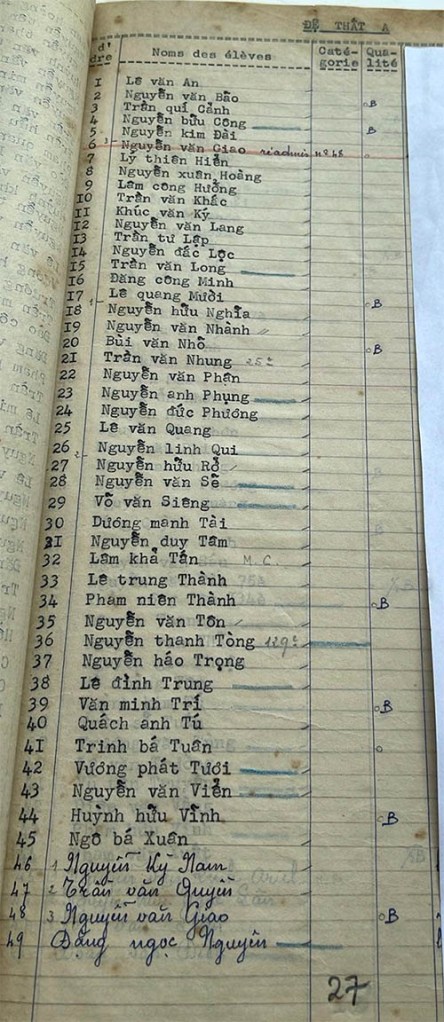 ĐỆ THẤT A
d'
dre Noms des élèves Caté-gorie Qua-lité
1 Lê văn An
2 Nguyễn văn Bão B
3 Trần quí Cảnh
4 Nguyễn bửu Công
5 Nguyễn kim Đài B
6 Nguyễn văn Giao réadmis nº 48
7 Lý thiên Hiển
8 Nguyễn xuân Hoàng
9 Lâm công Hưởng
10 Trần văn Khắc
11 Khúc văn Ký
12 Nguyễn văn Lang
13 Trần tư Lập
14 Nguyễn đắc Lộc
15 Trần văn Long
16 Đăng công Minh
17 Lê quang Mười B
18 Nguyễn hữu Nghĩa
19 Nguyễn văn Nhành
20 Bùi văn Nhỏ B
21 Trần văn Nhung 25è
22 Nguyễn văn Phận
23 Nguyễn anh Phụng
24 Nguyễn đức Phương
25 Lê văn Quang
26 Nguyễn linh Qui
27 Nguyễn hữu Rở
28 Nguyễn văn Sê
29 Võ văn Siêng
30 Dương mạnh Tài
31 Nguyễn duy Tâm
32 Lâm khả Tấn M.C.
33 Lê trung Thành
34 Phạm niên Thành B
35 Nguyễn văn Tôn
36 Nguyễn thanh Tòng 129è
37 Nguyễn háo Trọng
38 Lê đình Trung
39 Văn minh Trí B
40 Quách anh Tú
41 Trinh bá Tuân
42 Vương phát Tươi
43 Nguyễn văn Viễn
44 Huỳnh hữu Vĩnh B
45 Ngô bá Xuân
46 1 Nguyễn Kỳ Nam
47 2 Trần văn Quyền
48 3 Nguyễn văn Giao B
49 Đặng ngọc Nguyên
27